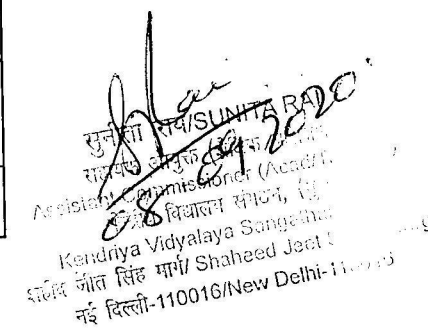 SRai
सुनीता राय/SUNITA RAI
08/09/2020
सहायक आयुक्त
Assistant Commissioner (Acad/
विद्यालय संगठन,
Kendriya Vidyalaya Sangathan
शहीद जीत सिंह मार्ग/ Shaheed Jeet
नई दिल्ली-110016/New Delhi-11